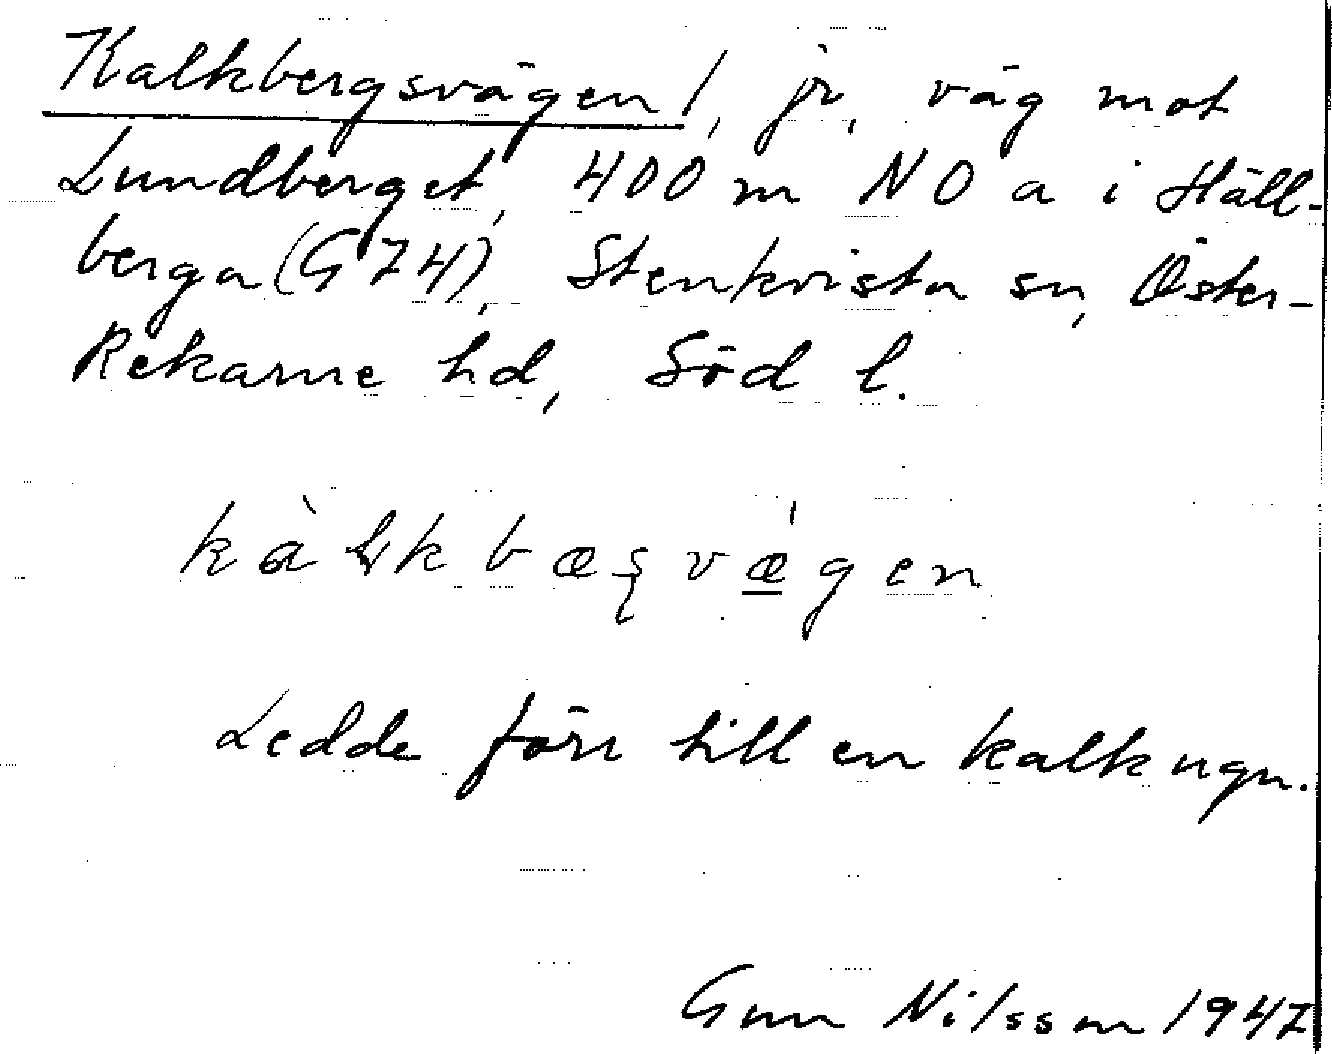 Kalkbergsvägen /, jr, väg mot
Lundberget, 400 m NO a i Häll-
berga (G 74), Stenkvista sn, Öster-
Rekarne hd, Söd l.
kàlkbæʂvǽgen
Ledde förr till en kalkugn.
Gun Nilsson 1947